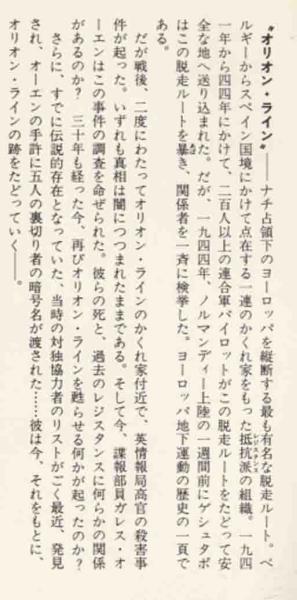 〝オリオン・ライン〟――ナチ占領下のヨーロッパを縦断する最も有名な脱走ルート。ベ
ルギーからスペイン国境にかけて点在する一連のかくれ家をもった抵抗派の組織。一九四
一年から四四年にかけて、二百人以上の連合軍パイロットがこの脱走ルートをたどって安
全な地へ送り込まれた。だが、一九四四年、ノルマンディー上陸の一週間前にゲシュタポ
はこの脱走ルートを暴き、関係者を一斉に検挙した。ヨーロッパ地下運動の歴史の一頁で
ある。
だが戦後、二度にわたってオリオン・ラインのかくれ家付近で、英情報局高官の殺害事
件が起った。いずれも真相は闇につつまれたままである。そして今、諜報部員ガレス・オ
ーエンはこの事件の調査を命ぜられた。彼らの死と、過去のレジスタンスに何らかの関係
があるのか？　三十年も経った今、再びオリオン・ラインを甦らせる何かが起ったのか？
さらに、すでに伝説的存在となっていた、当時の対独協力者のリストがごく最近、発見
され、オーエンの手許に五人の裏切り者の暗号名が渡された……彼は今、それをもとに、
オリオン・ラインの跡をたどっていく――。